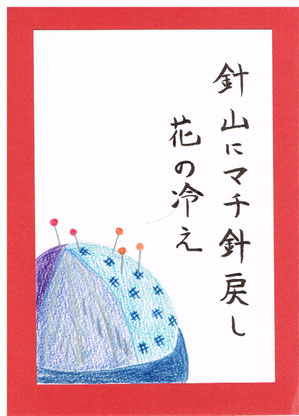 針山にマチ針戻し
花の冷え